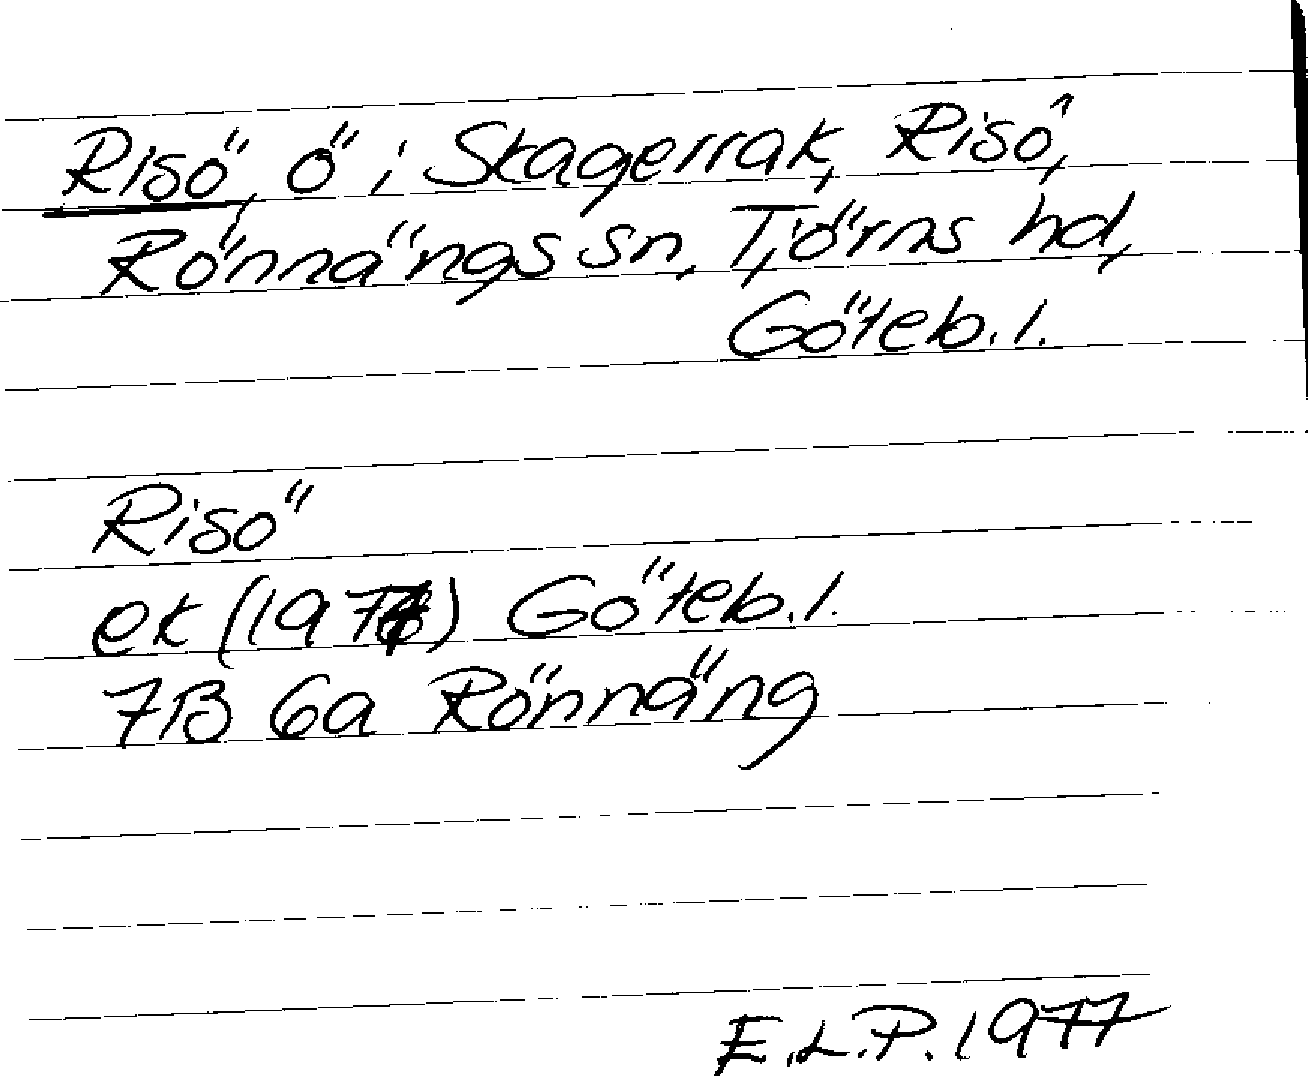 Risö, ö i Skagerrak, Risö,
Rönnängs sn, Tjörns hd,
Göteb. l.
Risö
ek (1974) Göteb. l.
7B 6a Rönnäng
E.L.P. 1977